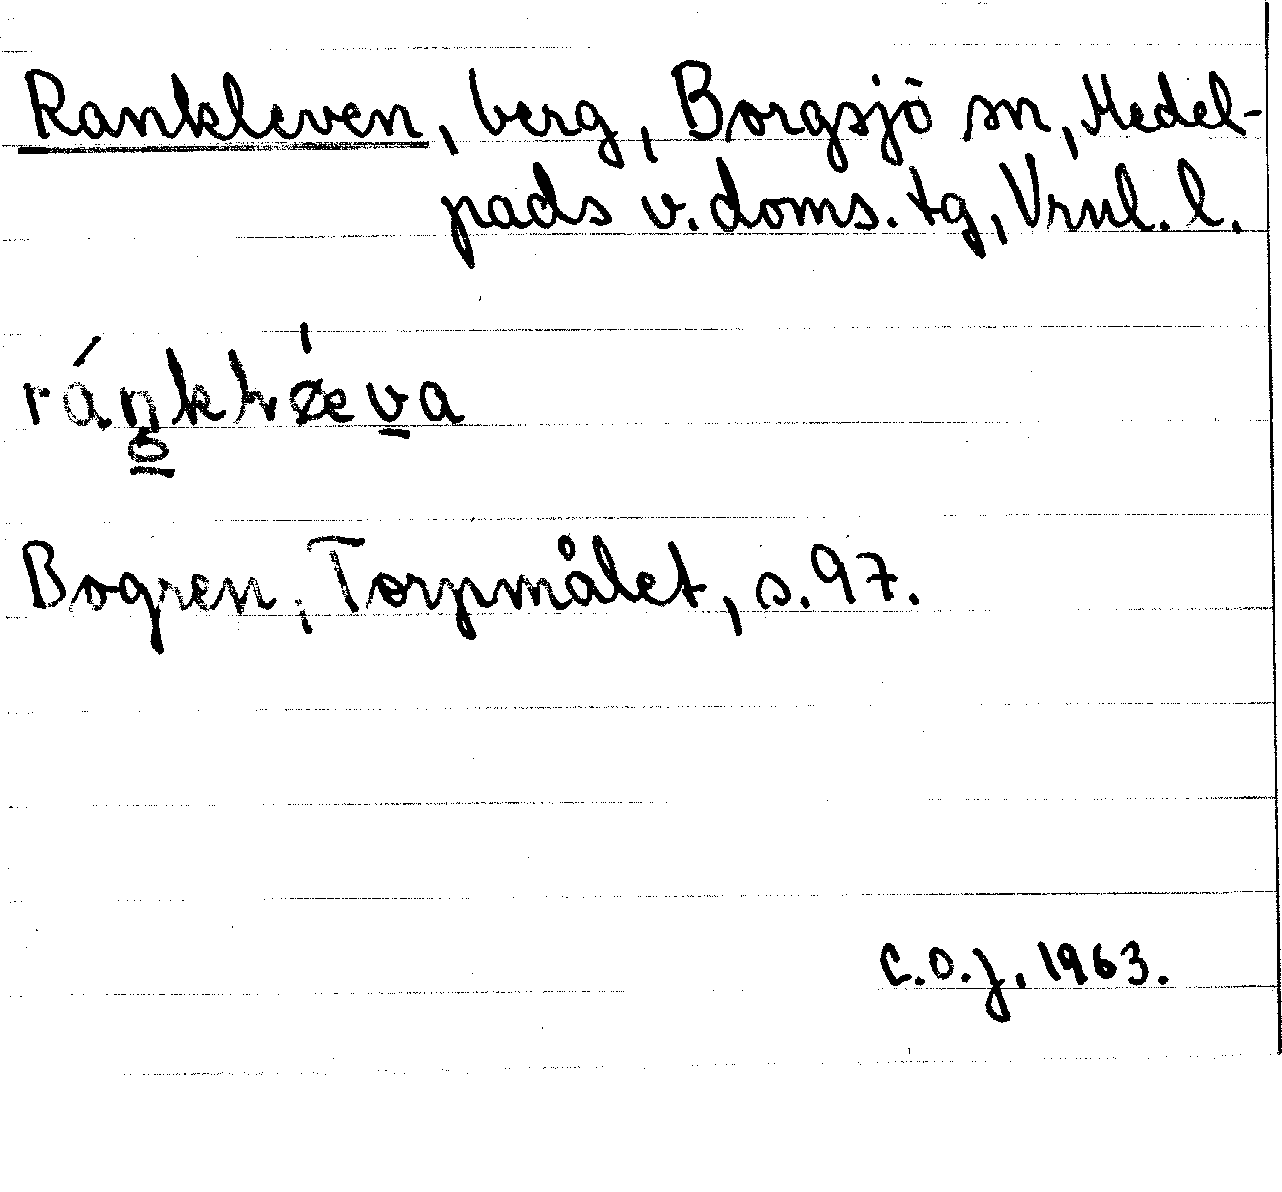 Rankleven, berg, Borgsjö sn, Medel-
pads v. doms. tg, Vrnl. l.
Bogren, Torpmålet, s. 97.
C.O.J. 1963.